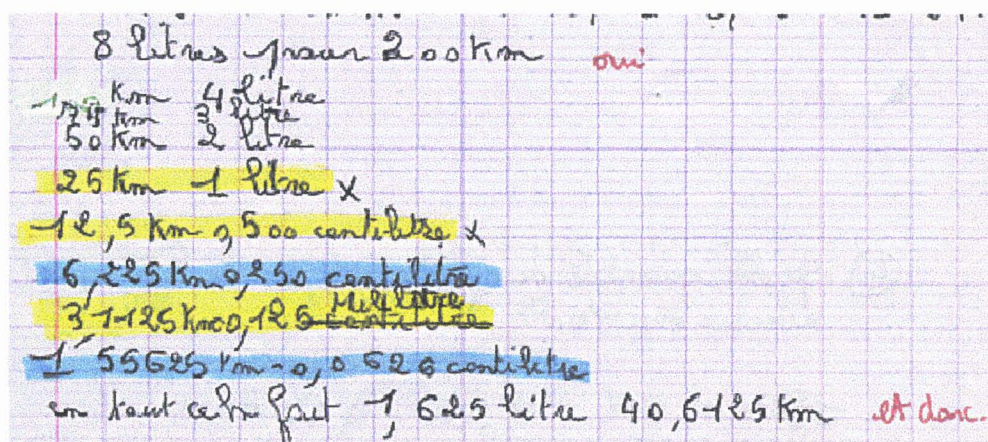 8 litres pour 200 Km oui
Km 4 litre
75 Km 3 litre
50 Km 2 litre
25 Km 1 litre x
12,5 Km 0,500 centilitre x
6,225 Km 0,250 centilitre
3,1125 Km 0,125 centilitre Mililitre
1,55625 Km 0,0620 centilitre
en tout cela fait 1,625 litre 40,6125 Km et donc.